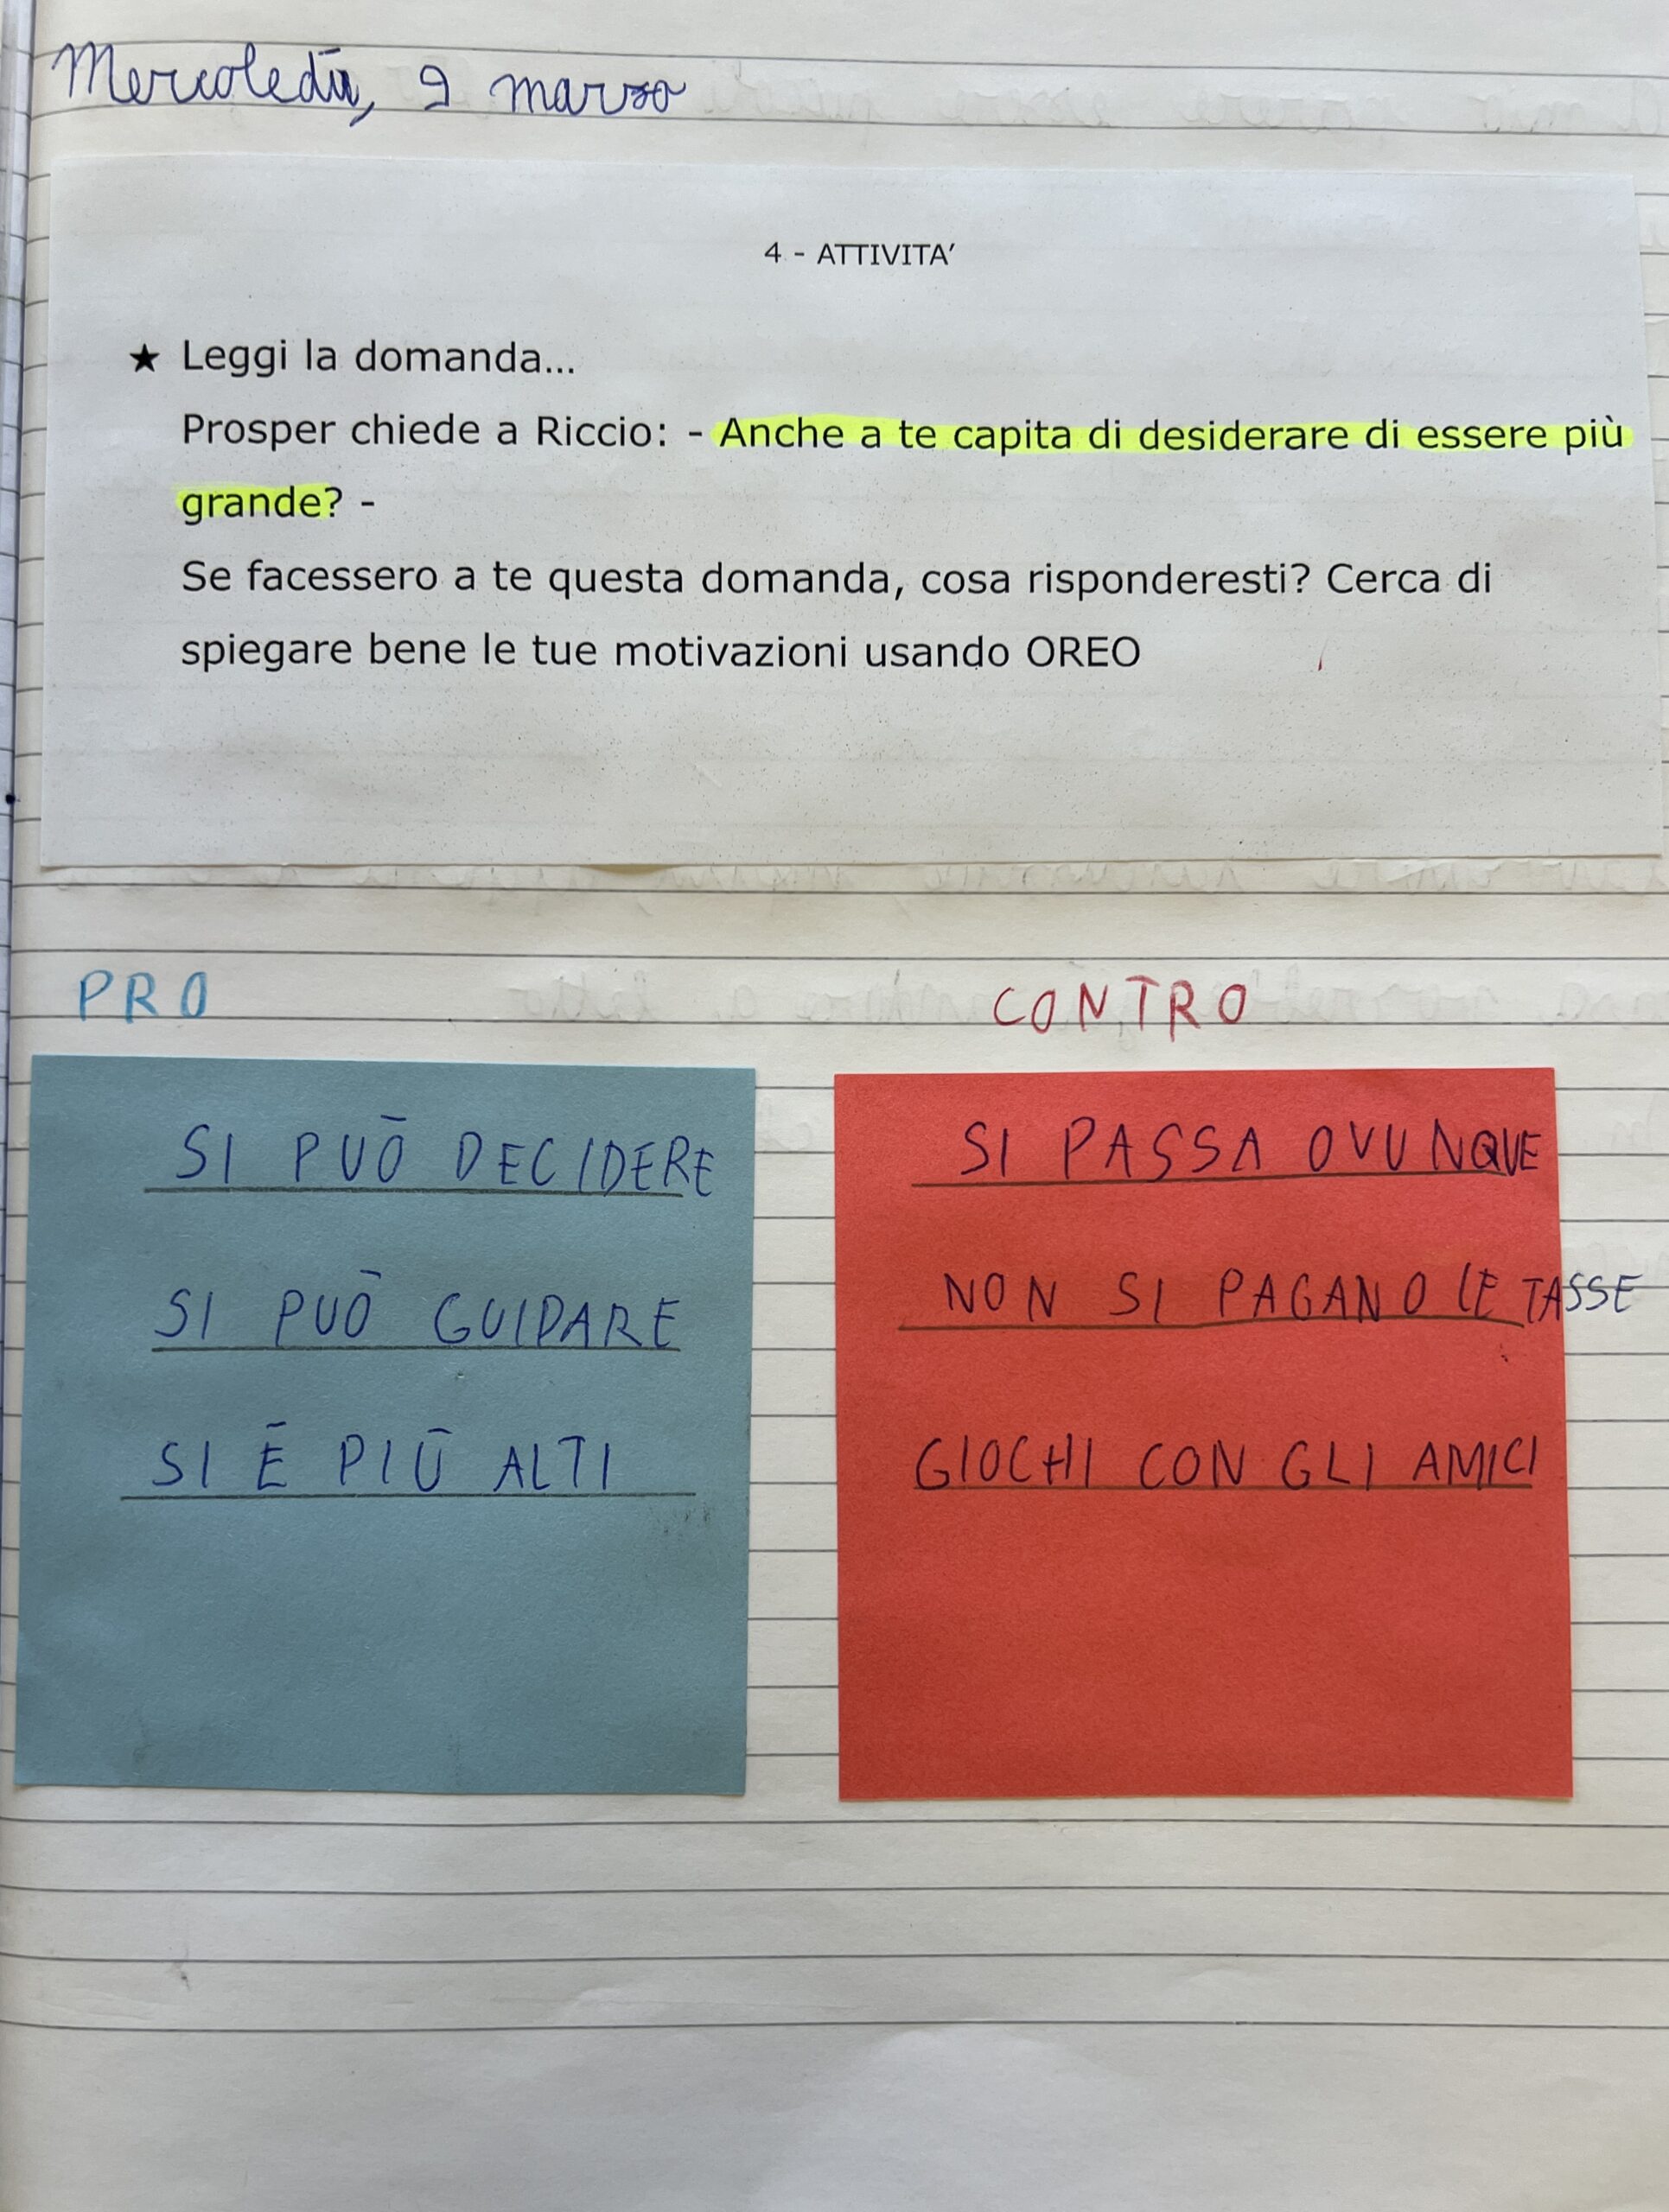 Mercoledì, 9 marzo
4 - ATTIVITA'
★ Leggi la domanda...
Prosper chiede a Riccio: - Anche a te capita di desiderare di essere più
grande? -
Se facessero a te questa domanda, cosa risponderesti? Cerca di
spiegare bene le tue motivazioni usando OREO
PRO
CONTRO
SI PUÒ DECIDERE
SI PUÒ GUIDARE
SI È PIÙ ALTI
SI PASSA OVUNQUE
NON SI PAGANO LE TASSE
GIOCHI CON GLI AMICI